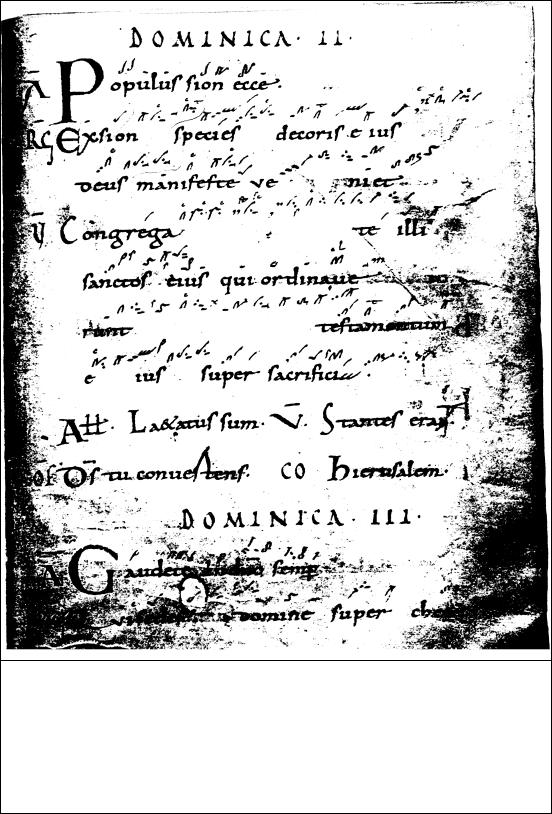 DOMINICA · II ·
A Populus sion ecce.
RG Exsion species decoris eius
deus manifeste ve niet
V Congrega te illi
sanctos eius qui ordinave
runt testamentum
e ius super sacrificia.
All. Laetatus sum. V. Stantes erant
of Ds tu convertens. CO Hierusalem.
DOMINICA · III ·
A Gaudete semp
domine super